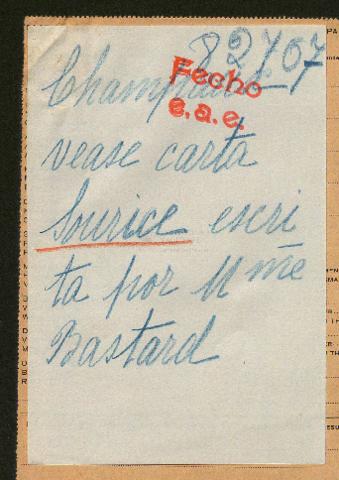 82707
Fecho
e.a.e.
vease carta
Sourice escri
ta por Mme
Bastard